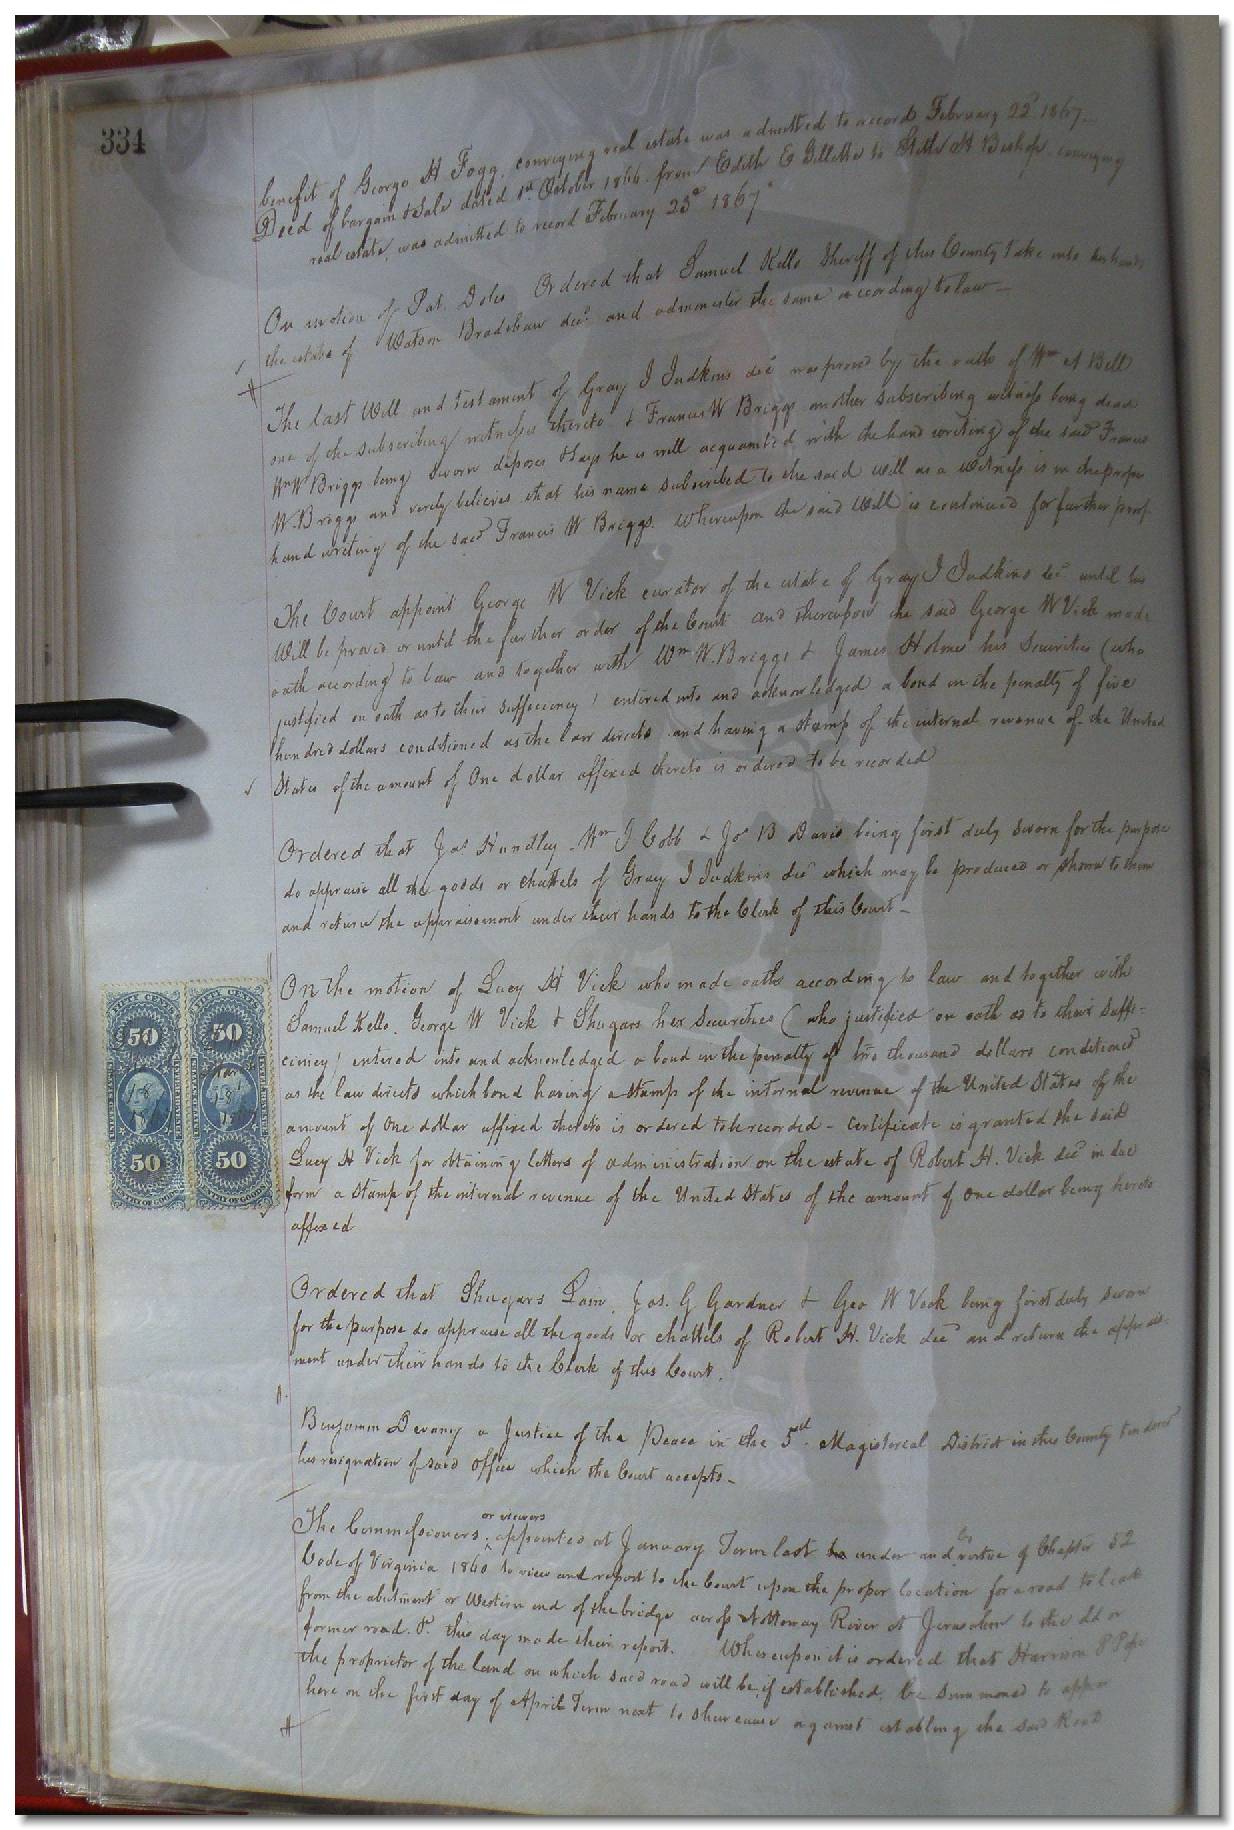 334
benefit of George H Fogg, conveying real estate was admitted to record February 22d 1867.
Deed of bargain & sale dated 1st October 1866 from Edith E Gillette to H Bishop conveying
real estate, was admitted to record February 23d 1867
On motion of Pat. Doles Ordered that Samuel Kello Sheriff of this County take into his hands
the estate of Watson Bradshaw decd and administer the same according to law —
The last Will and testament of Gray J Judkins decd was proved by the oath of Wm A Bell
one of the subscribing witness thereto & Francis W Briggs another subscribing witness being dead
Wm W Briggs being sworn deposes & says he is well acquainted with the hand writing of the said Francis
W. Briggs and verily believes that his name subscribed to the said Will as a witness is in the proper
hand writing of the said Francis W Briggs. Whereupon the said Will is continued for further proof.
The Court appoint George W Vick curator of the estate of Gray J Judkins decd until his
Will be proved or until the further order of the Court and thereupon the said George W Vick made
oath according to law and together with Wm W. Briggs & James Holmes his Securities (who
justified on oath as to their sufficiency) entered into and acknowledged a bond in the penalty of five
hundred dollars conditioned as the law directs and having a stamp of the internal revenue of the United
States of the amount of One dollar affixed thereto is ordered to be recorded
Ordered that Jas Hundley Wm J Cobb & Jo B Davis being first duly sworn for the purpose
do appraise all the goods or chattels of Gray J Judkins decd which may be produced or shown to them
and return the appraisement under their hands to the Clerk of this Court —
On the motion of Lucy H Vick who made oath according to law and together with
Samuel Kello, George W Vick & Shugars her Securities (who justified on oath as to their suffi=
ciency) entered into and acknowledged a bond in the penalty of two thousand dollars conditioned
as the law directs which bond having a stamp of the internal revenue of the United States of the
amount of One dollar affixed thereto is ordered to be recorded – Certificate is granted the said
Lucy H Vick for obtaining letters of administration on the estate of Robert H. Vick decd in due
form a stamp of the internal revenue of the United States of the amount of one dollar being hereto
affixed
50 50
50 50
Ordered that Shugars Lain, Jas. G Gardner & Geo W Vick being first duly sworn
for the purpose do appraise all the goods or chattels of Robert H. Vick decd and return the apprais=
ment under their hands to the Clerk of this Court.
Benjamin Devany a Justice of the Peace in the 5th Magisterial District in this County tendered
his resignation of said office which the Court accepts —
The Commissioners or viewers appointed at January Term last under and by virtue of Chapter 52
Code of Virginia 1860 to view and report to the Court upon the proper location for a road to lead
from the abutment or Western end of the bridge across Nottoway River at Jerusalem to the old or
former road. this day made their report. Whereupon it is ordered that Harrison P Pope
the proprietor of the land on which said road will be, if established, be summoned to appear
here on the first day of April Term next to shew cause against establing the said Road